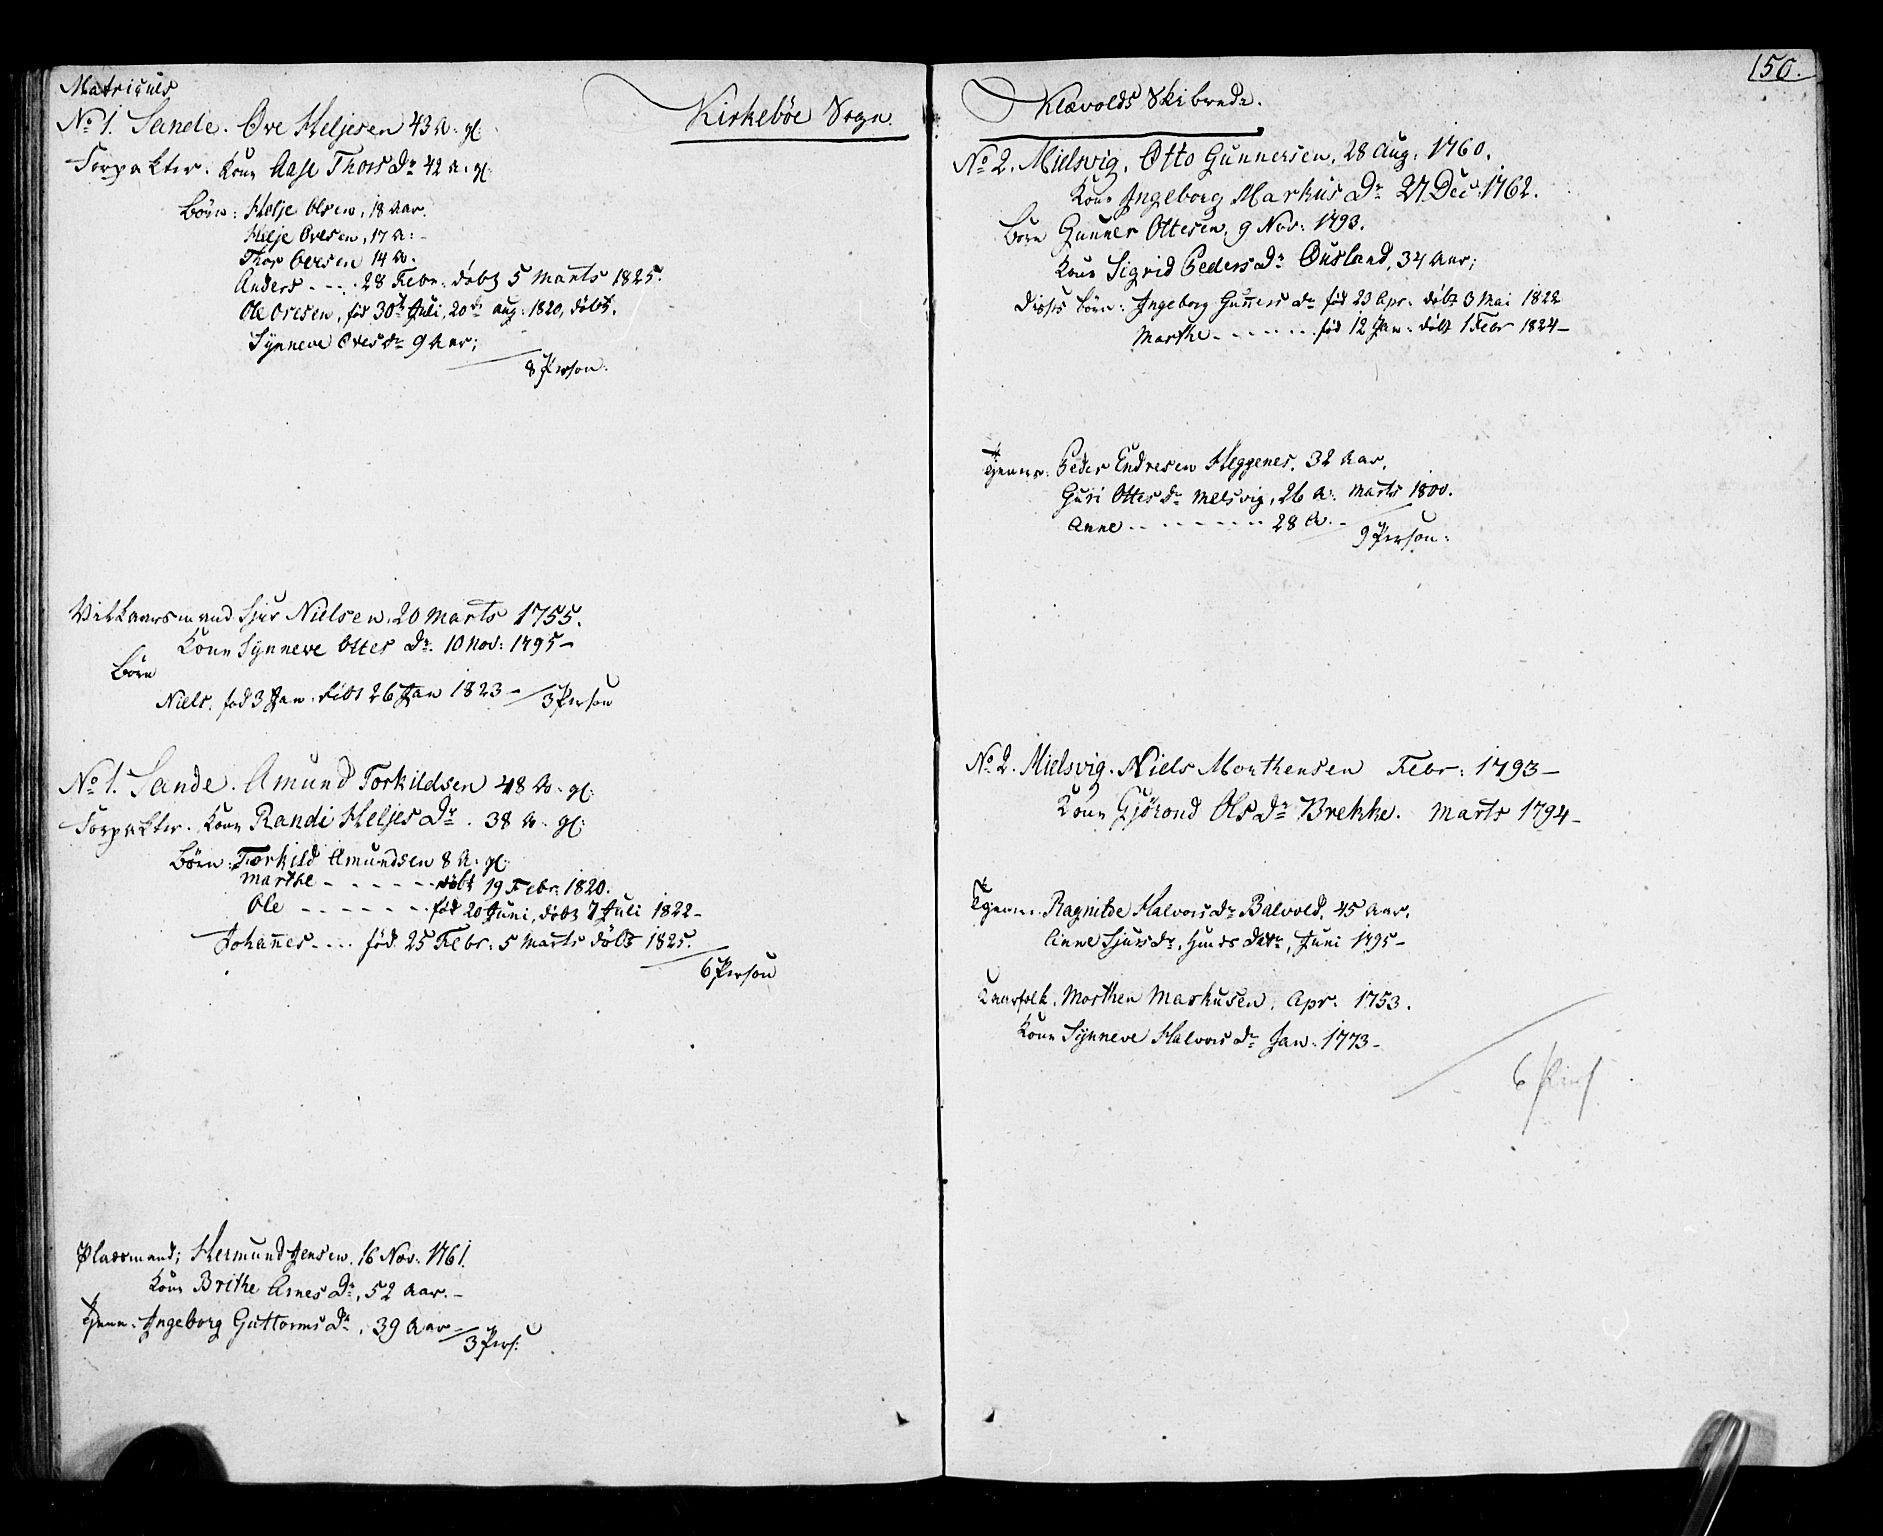 Matriculs
Kirkebøe Sogn.
No 1. Sande. Ove Heljesen 43 A. gl.
Forpakter. Kone Aase Thors Dr 42 A. gl.
Børn: Helje Olsen, 18 Aar.
Helje Ovesen, 17 A: -
Thor Ovesen 14 A.
Anders - - - 28 Febr. døbt 5 Marts 1825.
Ole Ovesen, fød 30te Juli, 20de aug: 1820, døbt.
Synneve Oves Dr 9 Aar;
8 Person.
Vilkaarsmand Sjur Nielsen, 20 Marts 1755.
Kone Synneve Ottes Dr. 10 Nov: 1795 -
Børn
Niels, fød 3 Jan. døbt 26 Jan 1823 -
3 Person
No 1. Sande. Amund Torkildsen 48 A. gl.
Forpakter. Kone Randi Heljes Dr. 38 A. gl.
Børn: Torkild Amundsen 8 A: gl.
Marthe - - - - - døbt 19 Febr: 1820.
Ole - - - - - - fød 20 Juni, døbt 7 Juli 1822 -
Johannes - - - fød 25 Febr: 5 Marts døbt 1825.
6 Person
Pladsmand; Hermund Jensen, 16 Nov: 1761.
Kone Brithe Arnes Dr, 52 Aar. -
Tjenn. Ingeborg Guttorms Dr, 39 Aar
3 Pers:
150.
Klævolds Skibrede.
No 2. Mielsvig. Otto Gunnersen, 28 Aug. 1760.
Kone Ingeborg Markus Dr 27 Dec. 1762.
Børn Gunner Ottesen, 9 Nov: 1793.
Kone Sigrid Peders Dr Øusland, 34 Aar;
Disses Børn: Ingeborg Guñers Dr fød 23 Apr: døbt 3 Mai 1822
Marthe - - - - - - fød 12 Jan: døbt 1 Febr 1824 -
Tjenere: Peder Endresen Heggenes, 32 Aar,
Guri Ottes Dr Melsvig, 26 A: Marts 1800.
Anne - - - - - - - 28 A. -
9 Person:
No 2. Mielsvig. Niels Morthensen Febr: 1793 -
Kone Gjørond Ols Dr Brekke. Marts 1794 -
Tjenere. Ragnilde Halvors Dr Balvold, 45 Aar,
Anne Sjurs Dr, Datr, Juni 1795 -
Kaarfolk, Morthen Markusen, Apr: 1753.
Kone Synneve Halvors Dr Jan. 1773 -
6 Pers